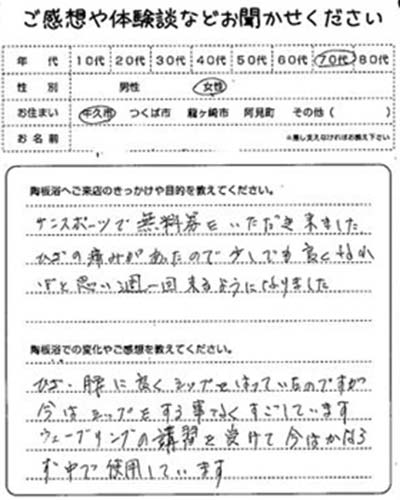 ご感想や体験談などお聞かせください
年 代 10代 20代 30代 40代 50代 60代 70代 80代
性 別 男性 女性
お住まい 牛久市 つくば市 龍ヶ崎市 阿見町 その他( )
お名前 ※差し支えなければお教え下さい
陶板浴へご来店のきっかけや目的を教えてください。
サンスポーツで無料券をいただき来ました
ひざの痛みがあったので少しでも良くなれ
ばと思い週一回来るようになりました
陶板浴での変化やご感想を教えてください。
ひざ・腰に良くシップをはっていたのですが
今はシップをする事なくすごしています
ウェーブリングの講習を受けて今はかなら
ず中で使用しています